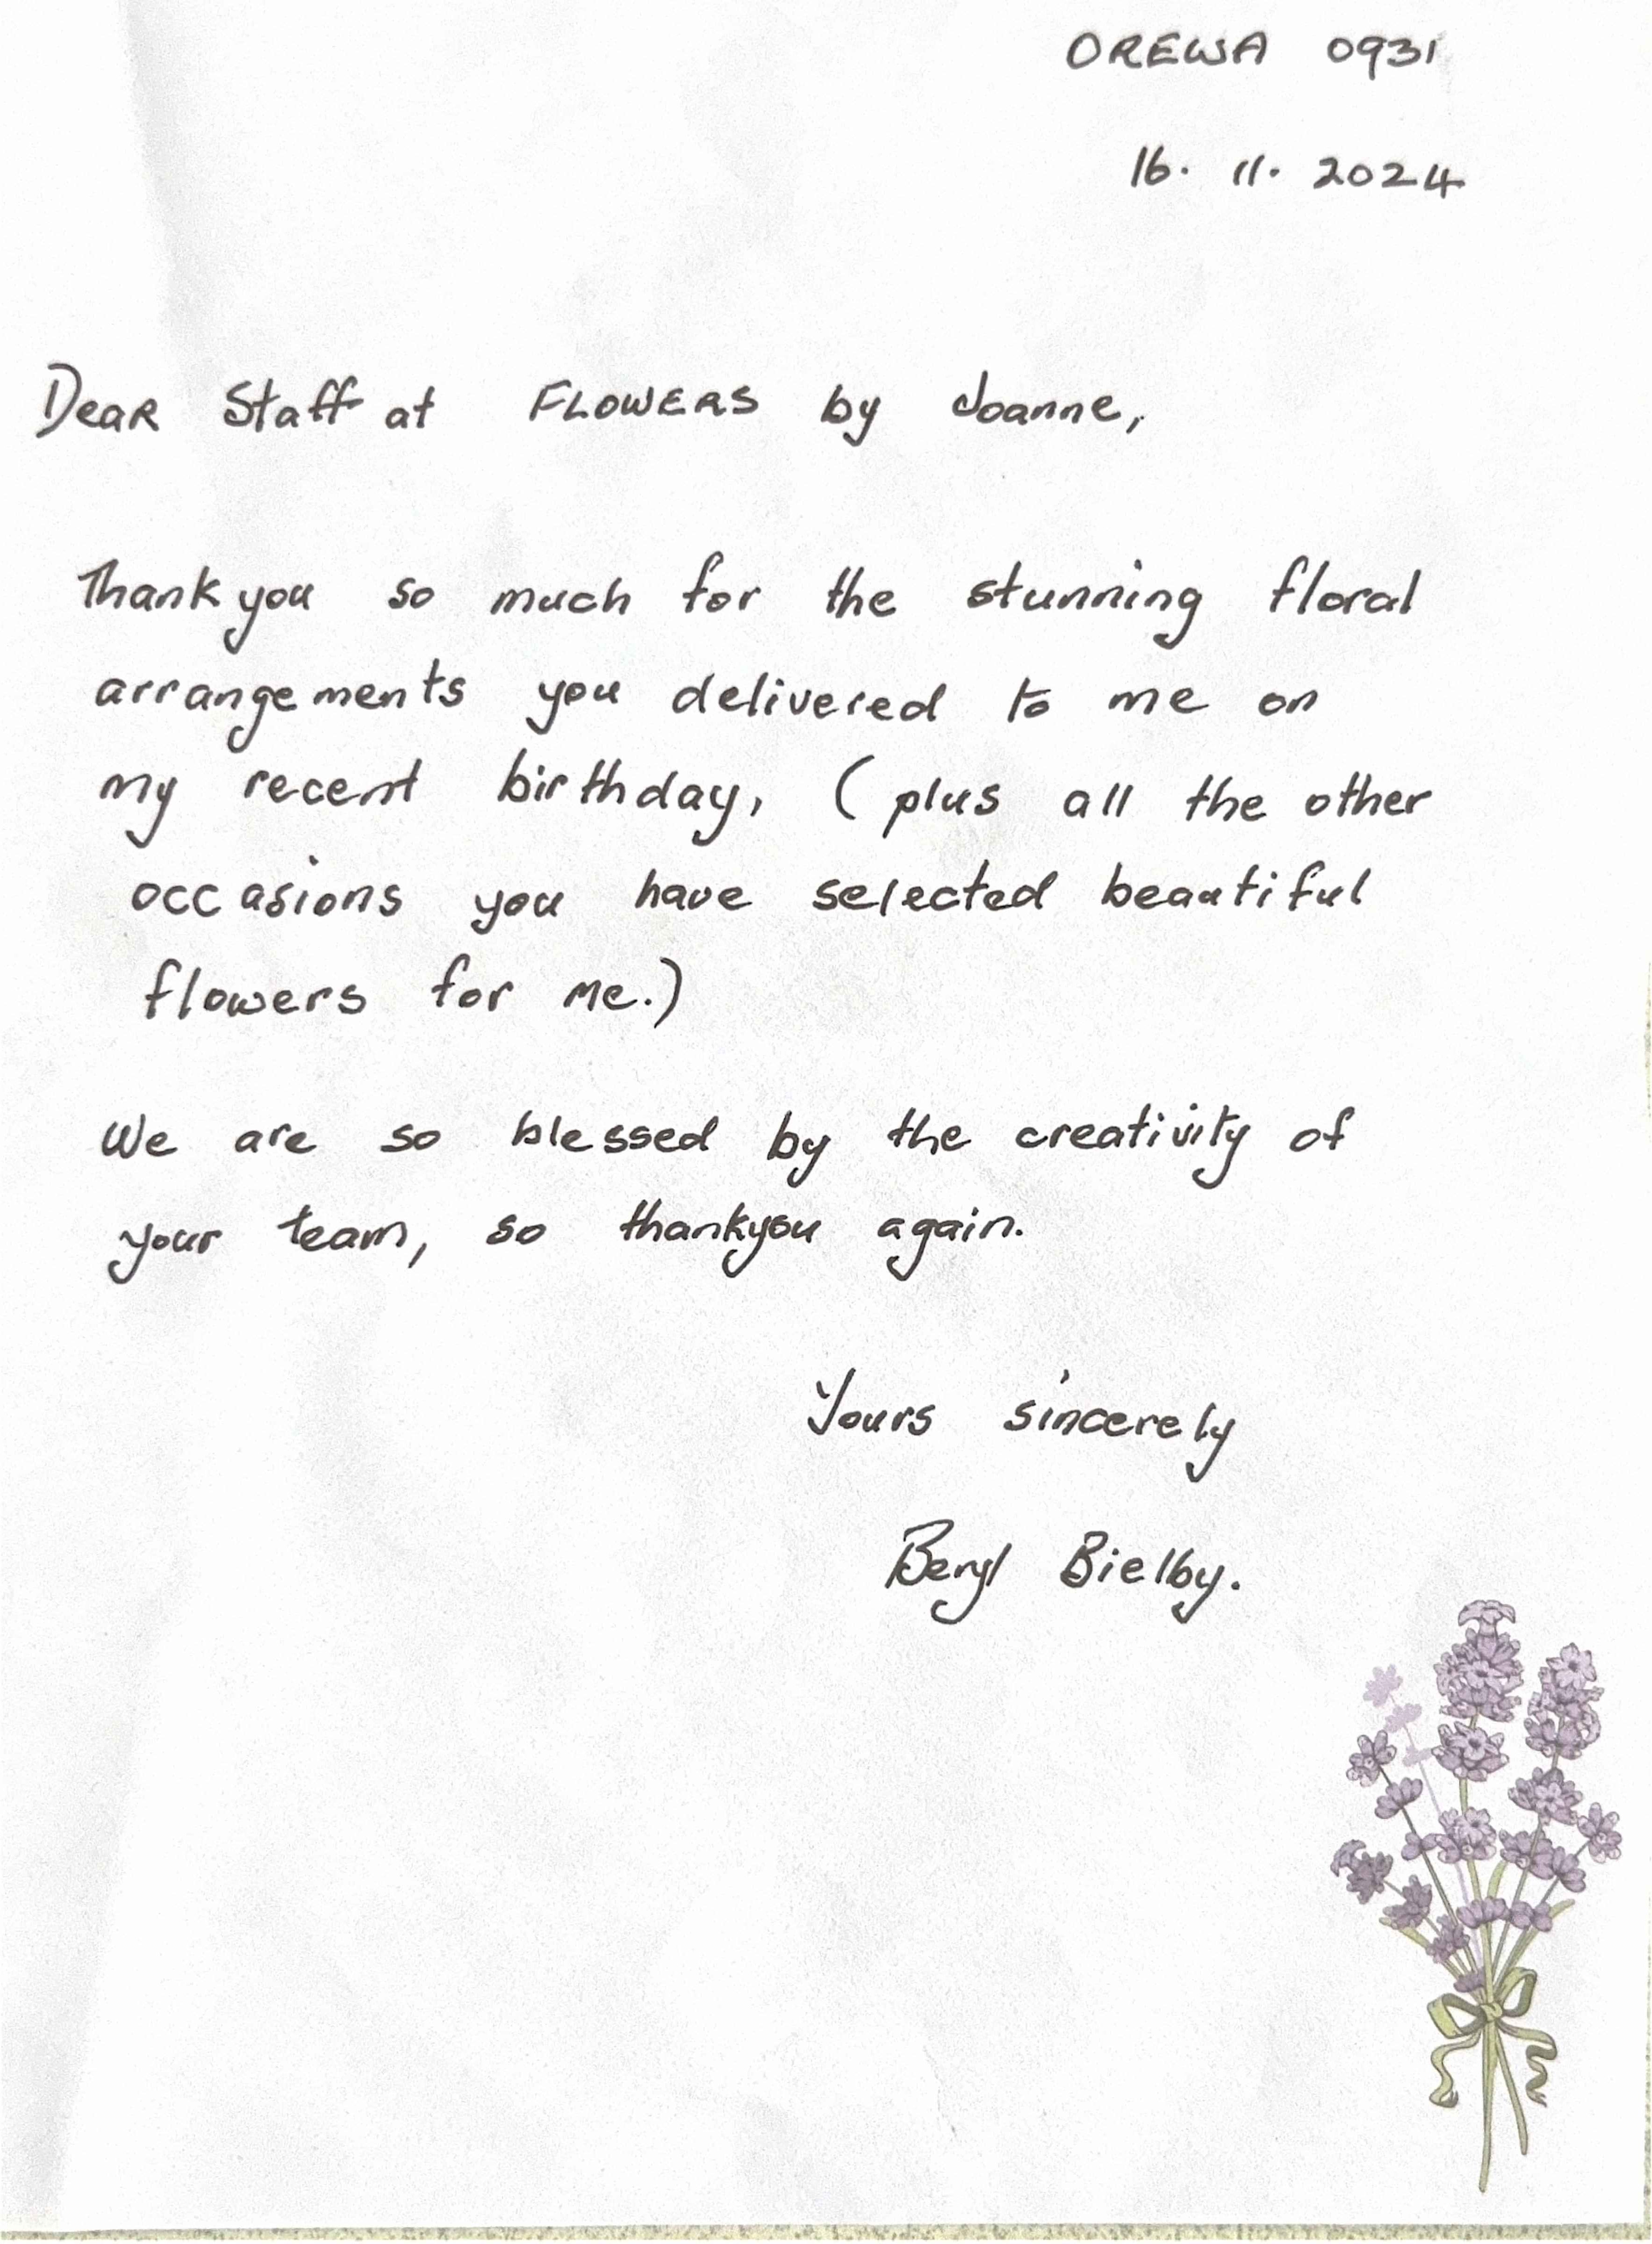 OREWA 0931
16. 11. 2024
Dear Staff at FLOWERS by Joanne,
Thankyou so much for the stunning floral
arrangements you delivered to me on
my recent birthday, (plus all the other
occasions you have selected beautiful
flowers for me.)
We are so blessed by the creativity of
your team, so thankyou again.
Yours sincerely
Beryl Bielby.